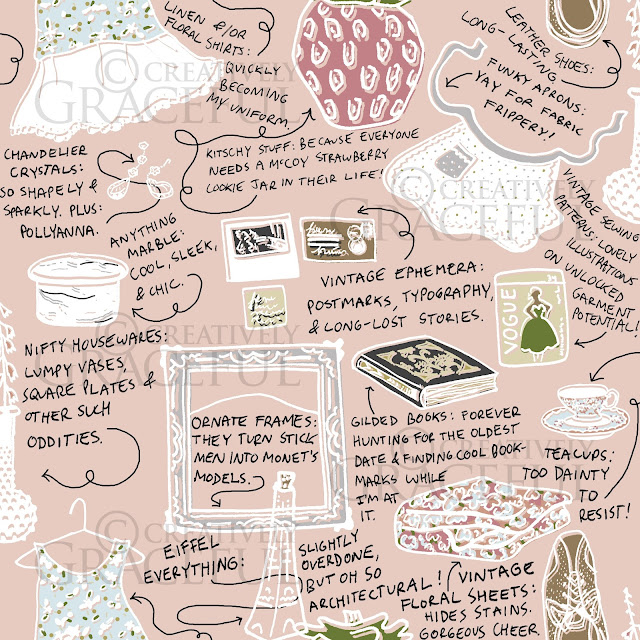 LINEN &/OR
FLORAL SHIRTS:
QUICKLY
BECOMING
MY UNIFORM.
LEATHER SHOES:
LONG-LASTING
FUNKY APRONS:
YAY FOR FABRIC
FRIPPERY!
© CREATIVELY
GRACEFUL
KITSCHY STUFF: BECAUSE EVERYONE
NEEDS A MCCOY STRAWBERRY
COOKIE JAR IN THEIR LIFE!
CHANDELIER
CRYSTALS:
SO SHAPELY &
SPARKLY. PLUS:
POLLYANNA.
© CREATIVELY
GRACEFUL
VINTAGE SEWING
PATTERNS: LOVELY
ILLUSTRATIONS
ON UNLOCKED
GARMENT
POTENTIAL!
ANYTHING
MARBLE:
COOL, SLEEK,
& CHIC.
VINTAGE EPHEMERA:
POSTMARKS, TYPOGRAPHY,
& LONG-LOST STORIES.
VOGUE
© CREATIVELY
GRACEFUL
NIFTY HOUSEWARES:
LUMPY VASES,
SQUARE PLATES &
OTHER SUCH
ODDITIES.
ORNATE FRAMES:
THEY TURN STICK
MEN INTO MONET'S
MODELS.
GILDED BOOKS: FOREVER
HUNTING FOR THE OLDEST
DATE & FINDING COOL BOOK-
MARKS WHILE
I'M AT
IT.
TEACUPS:
TOO DAINTY
TO
RESIST!
© CREATIVELY
GRACEFUL
© CREATIVELY
GRACEFUL
EIFFEL
EVERYTHING:
SLIGHTLY
OVERDONE,
BUT OH SO
ARCHITECTURAL!
VINTAGE
FLORAL SHEETS:
HIDES STAINS.
GORGEOUS CHEER